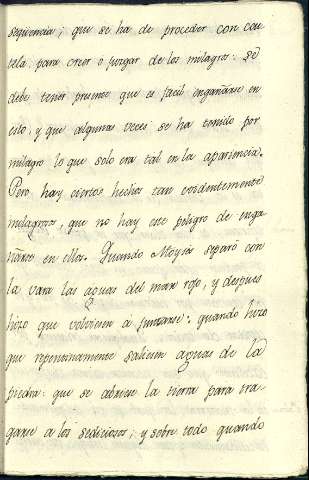 seqüencia; que se ha de proceder con cau
tela para creer o juzgar de los milagros: Se
debe tener presente que es facil engañarse en
esto, y que algunas veces se ha tenido por
milagro lo que solo era tal en la apariencia.
Pero hay ciertos hechos tan evidentemente
milagrosos, que no hay este peligro de enga
ñarse en ellos. Quando Moyses separó con
la vara las aguas del mar rojo, y despues
hizo que volviesen a juntarse: quando hizo
que repentinamente saliesen aguas de la
piedra: que se abriese la tierra para tra
garse a los sediciosos; y sobre todo quando